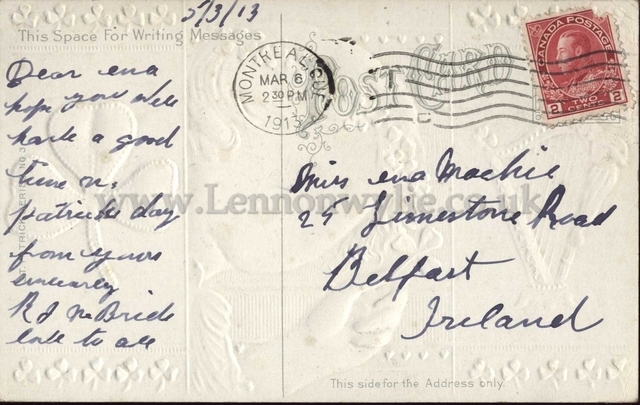 5/3/13
This Space For Writing Messages
Dear ena
hope you will
have a good
time on
patricks day
from yours
sincerely
R J McBride
love to all
POST CARD
MONTREAL, QUE.
MAR 6
2 30 PM
1913
CANADA POSTAGE
2 TWO CENTS 2
Miss ena Mackie
25 Limestone Road
Belfast
Ireland
www.Lennonwylie.co.uk
This side for the Address only.